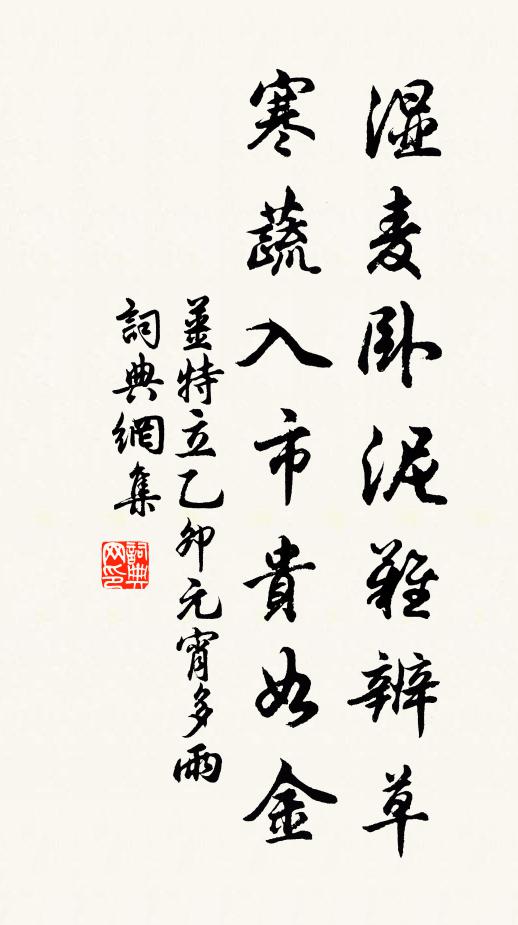 湿麦卧泥難辨草
寒蔬入市貴如金
薑特立乙卯元宵多雨
詞典網集
詞典网印